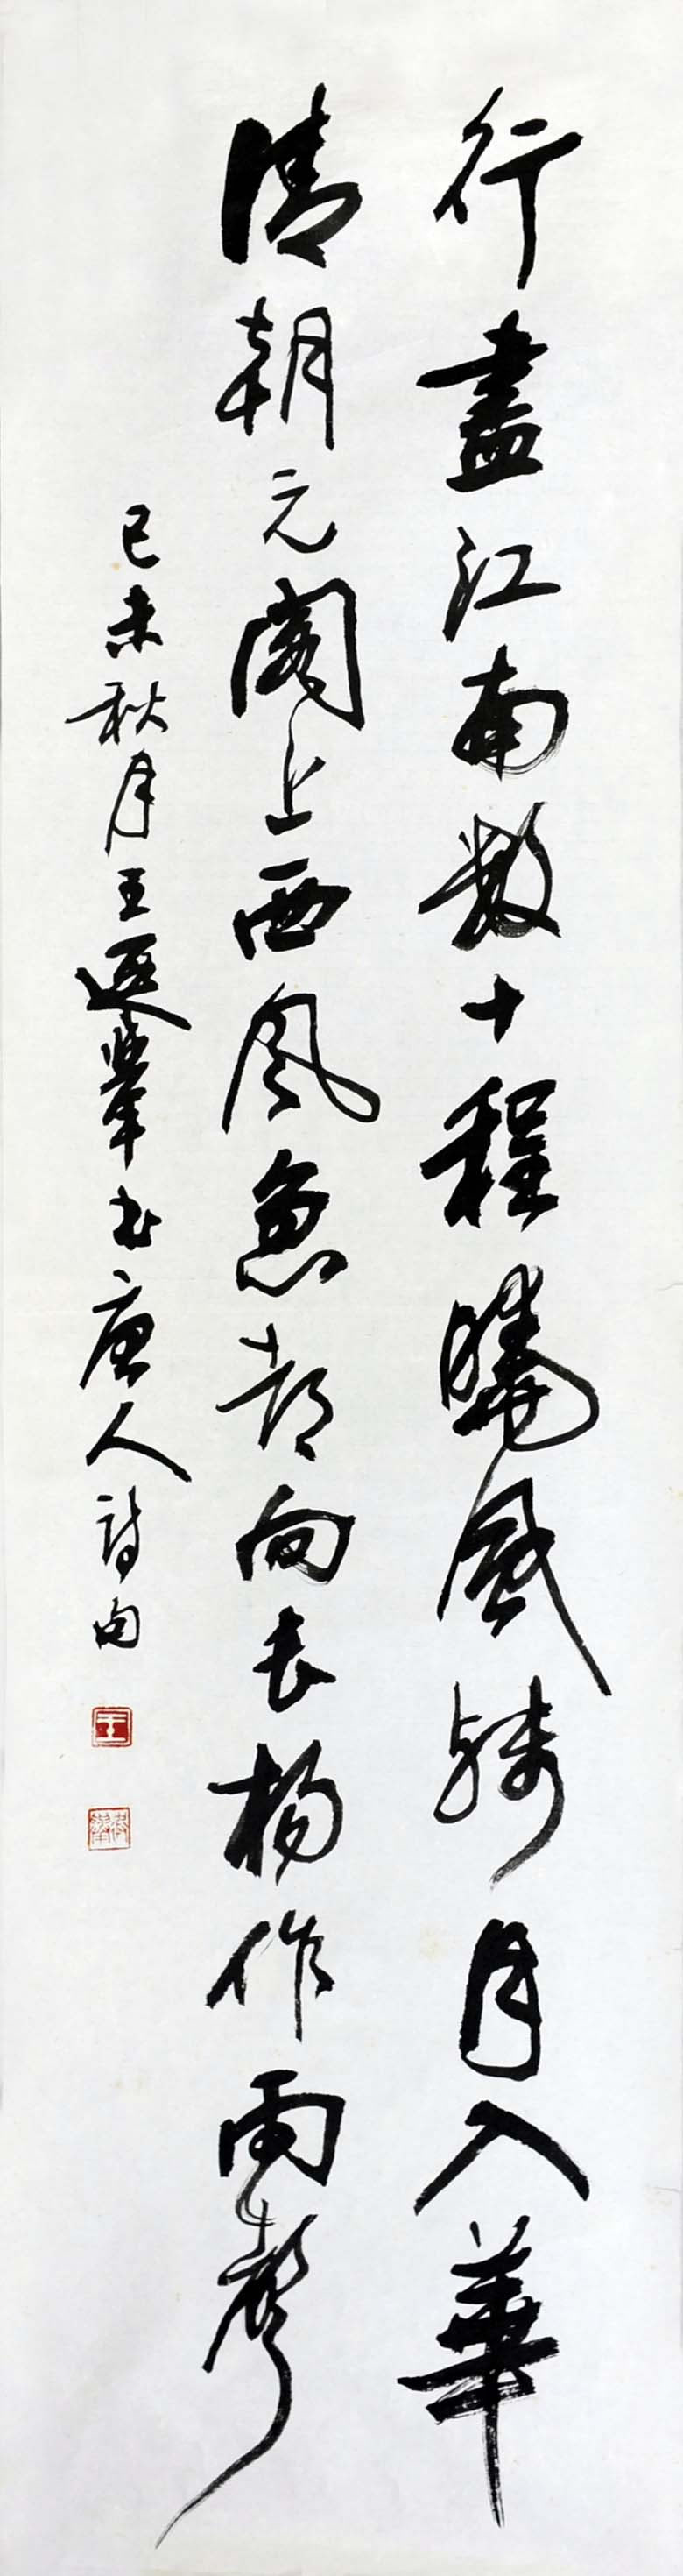 行盡江南數十程曉風殘月入華
清朝元閣上西風急都向長楊作雨聲
己未秋月王遐舉書唐人詩句
王
遐舉